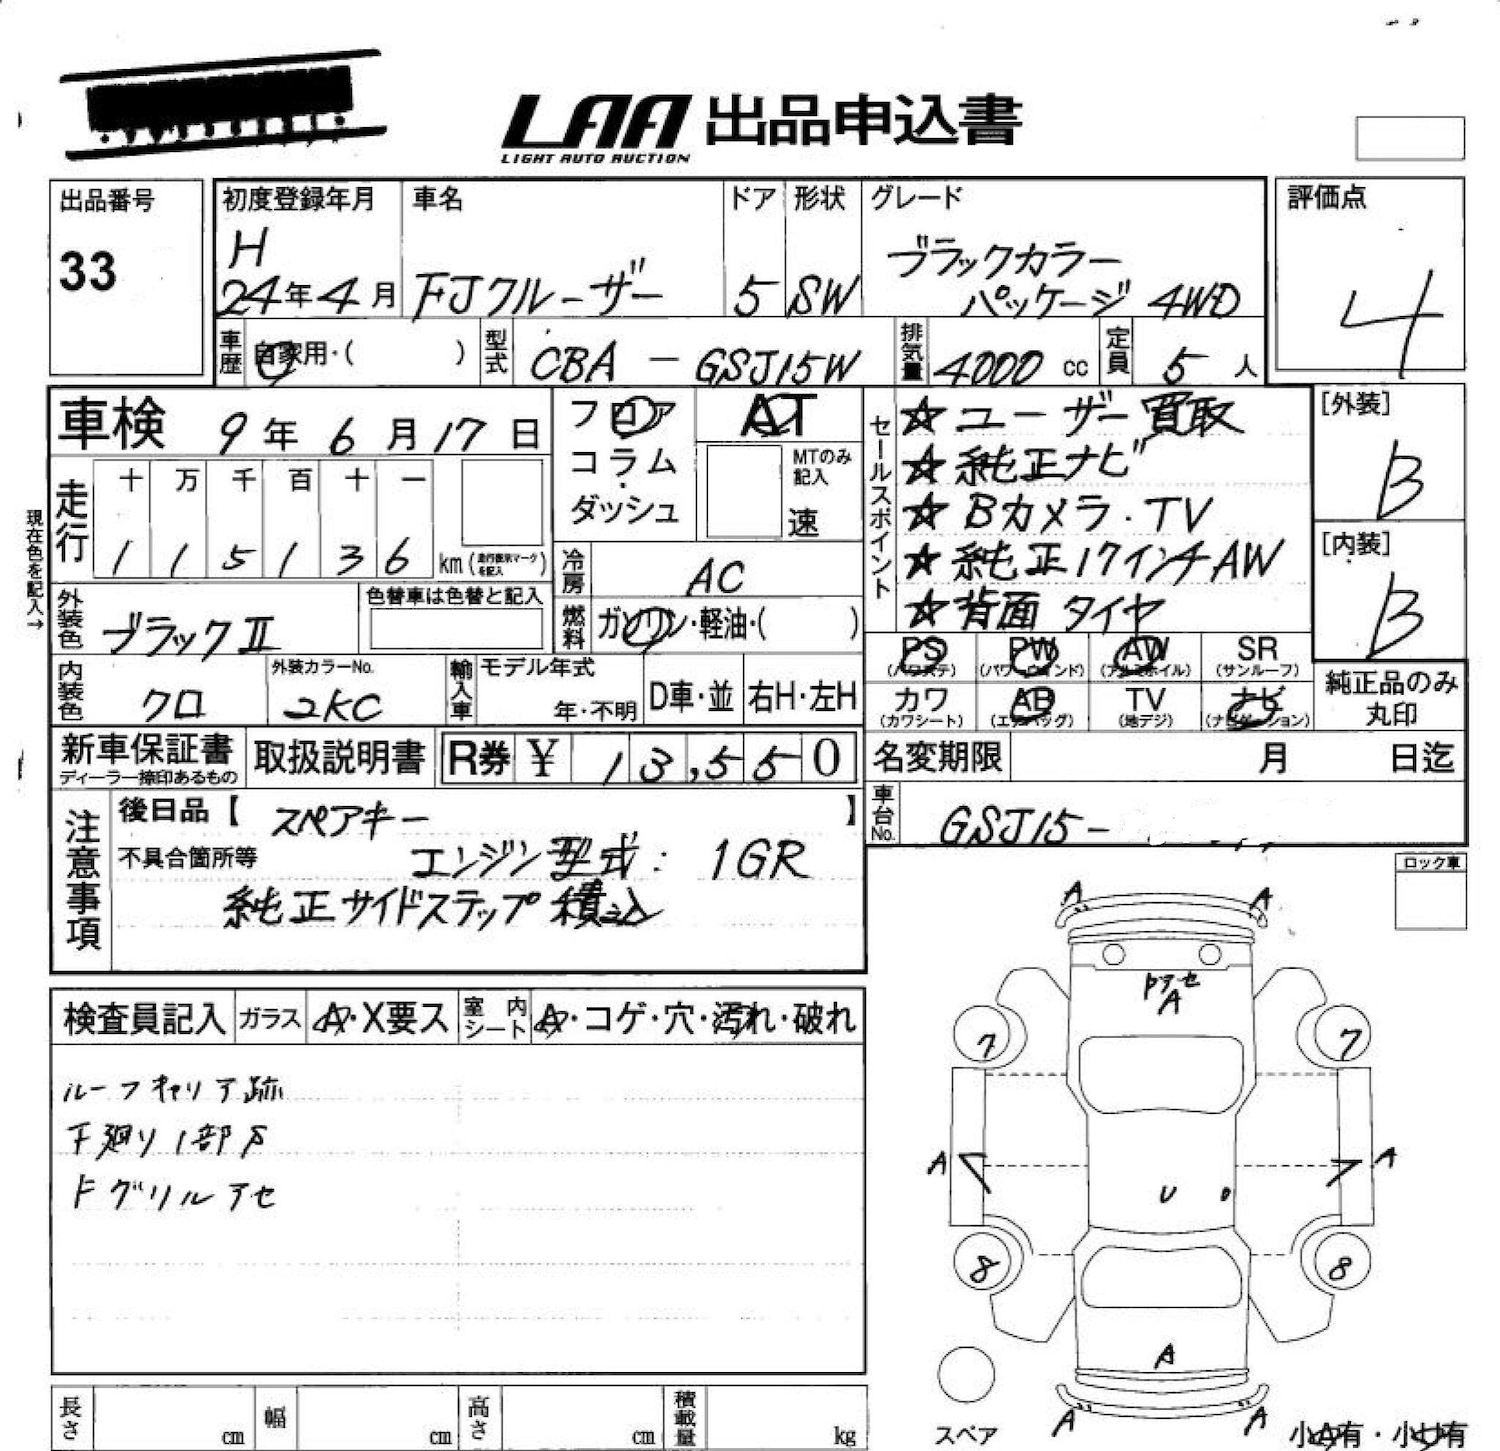 LAA 出品申込書
LIGHT AUTO AUCTION
出品番号
33
初度登録年月
H
24年4月
車名
FJクルーザー
ドア
5
形状
SW
グレード
ブラックカラー
パッケージ 4WD
評価点
4
車歴
自家用・( )
型式
CBA - GSJ15W
排気量
4000 cc
定員
5 人
車検 9年 6月 17日
フロア
コラム
ダッシュ
AT
MTのみ
記入
速
セールスポイント
☆ ユーザー買取
☆ 純正ナビ
☆ Bカメラ・TV
☆ 純正17インチAW
☆ 背面タイヤ
[外装]
B
[内装]
B
現在色を記入→
走行
十 万 千 百 十 一
1 1 5 1 3 6 km
冷房
AC
燃料
ガソリン・軽油・( )
外装色
ブラックⅡ
色替車は色替と記入
内装色
クロ
外装カラーNo.
2KC
輸入車
モデル年式
年・不明
D車・並
右H・左H
PS
(パワステ)
PW
(パワーウインド)
AW
(アルミホイル)
SR
(サンルーフ)
カワ
(カワシート)
AB
(エアバッグ)
TV
(地デジ)
ナビ
(ナビゲーション)
純正品のみ
丸印
新車保証書
ディーラー捺印あるもの
取扱説明書
R券 ¥ 13,550
名変期限 月 日迄
車台No.
GSJ15-
注意事項
後日品【 スペアキー 】
不具合箇所等 エンジン型式: 1GR
純正サイドステップ積込
ロック車
検査員記入
ガラス
A・X要ス
室内
シート
A・コゲ・穴・汚れ・破れ
ルーフキャリア跡
下廻り1部S
Fグリルアセ
A
A
アセ
A
7
7
A
A
U
8
8
A
A
A
スペア
小A有・小U有
長さ
cm
幅
cm
高さ
cm
積載量
kg